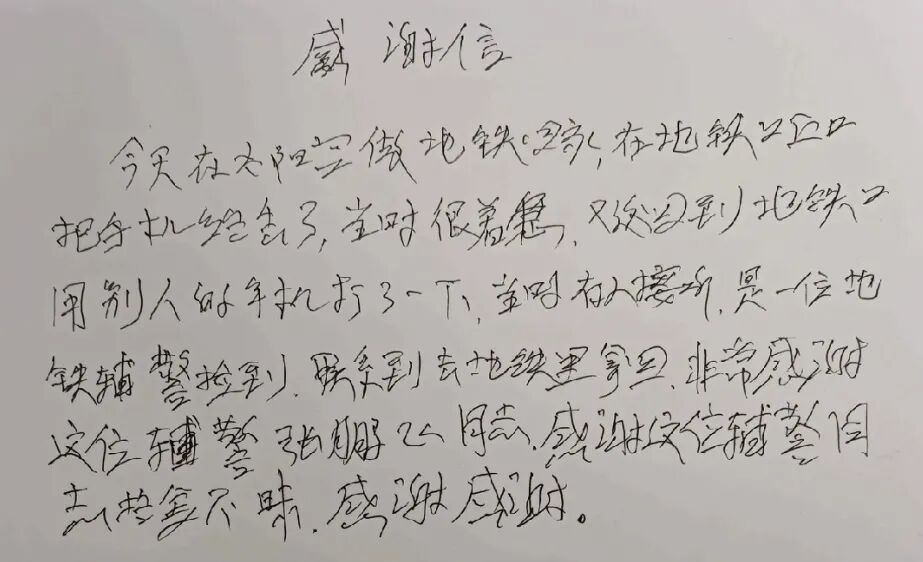 感谢信
今天在太阳宫做地铁回家，在地铁口
把手机丢了，当时很着急，又返回到地铁口
用别人的手机打了一下，当时有人接听，是一位地
铁辅警捡到，联系到去地铁里拿回，非常感谢
这位辅警张鹏飞同志，感谢这位辅警同
志拾金不昧，感谢感谢。